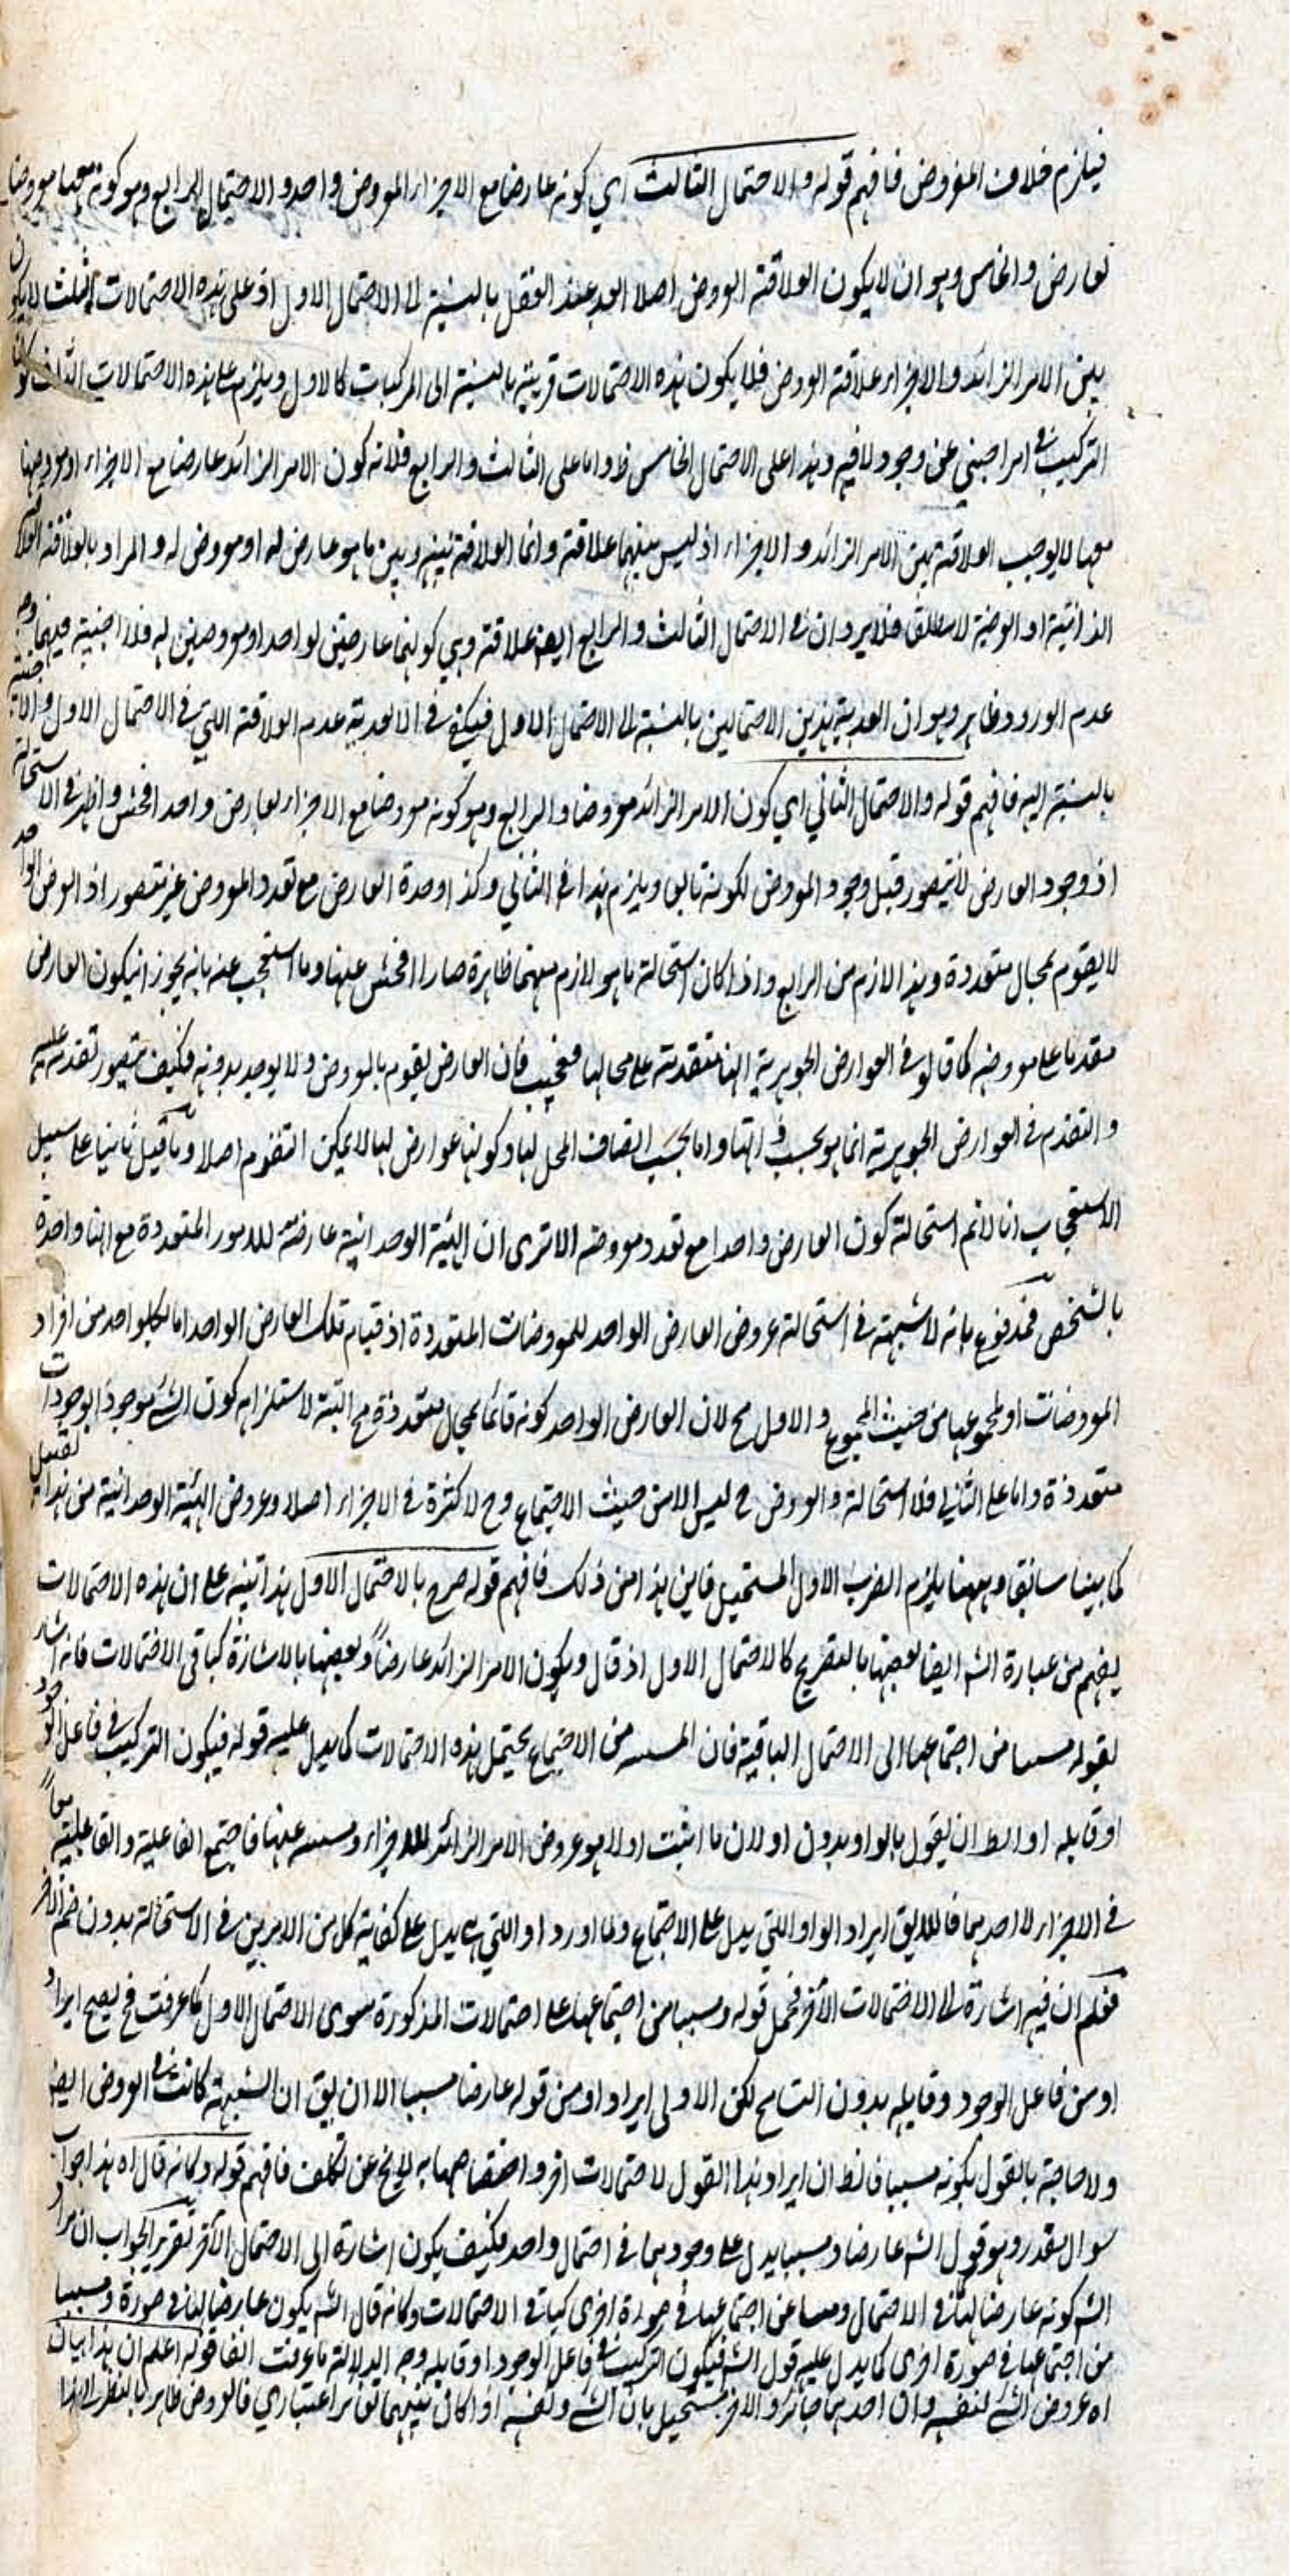 فيلزم خلاف المفروض فافهم قوله والاحتمال الثالث اي كونه عارضا مع الاجزاء المعروض واحد والاحتمال الرابع وهو كونه معها معروضا
لعارض والخامس وهو ان لا يكون العلاقة العروض اصلا ابعد عند العقل بالنسبة الى الاحتمال الاول اذ على هذه الاحتمالات الثلث لا يكون
بين الامر الزائد والاجزاء علاقة العروض فلا يكون هذه الاحتمالات قريبة بالنسبة الى المركبات كالاول ويلزم على هذه الاحتمالات الثلث
التركيب في امر اجنبي عن وجود لا فيه وهذا على الاحتمال الخامس ظ واما على الثالث والرابع فلانه كون الامر الزائد عارضا مع الاجزاء او معروضها
معها لا يوجب العلاقة بين الامر الزائد والاجزاء اذ ليس بينهما علاقة وانما العلاقة بينه وبين ما هو عارض له او معروض له والمراد بالعلاقة العلاقة
الذاتية او العرضية لا مطلق فلا يرد ان في الاحتمال الثالث والرابع ايض علاقة وهي كونهما عارضين لواحد او معروضين له فلا اجنبية فيهما وجه
عدم الورود ظاهر وهو ان ابعدية هذين الاحتمالين بالنسبة الى الاحتمال الاول فيكفي في الابعدية عدم العلاقة التي في الاحتمال الاول والاجنبية
بالنسبة اليه فافهم قوله والاحتمال الثاني اي كون الامر الزائد معروضا والرابع وهو كونه معروضا مع الاجزاء لعارض واحد افحش واظهر في الاستحالة
اذ وجود العارض لا يتصور قبل وجود المعروض لكونه تابعا ويلزم هذا في الثاني وكذا وحدة العارض مع تعدد المعروض غير متصور اذ العرض الواحد
لا يقوم بمحال متعددة وهذا لازم من الرابع واذا كان استحالة ما هو لازم منهما ظاهرة صارا افحش عنها وما استعجب عنه بانه يجوز ان يكون العارض
مقدما على معروضه كما قالوا في العوارض الجوهرية انها متقدمة على محالها فعجيب فان العارض يقوم بالمعروض ولا يوجد بدونه فكيف يتصور تقدمه عليه
والتقدم في العوارض الجوهرية انما هو بحسب ذواتها واما بحسب اتصاف المحل لها وكونها عوارض لها لا يمكن التقدم اصلا وما قيل ثانيا على سبيل
الاستعجاب انا لانم استحالة كون العارض واحدا مع تعدد معروضه الا ترى ان الهيئة الوحدانية عارضة للامور المتعددة مع انها واحدة
بالشخص فمدفوع بانه لا شبهة في استحالة عروض العارض الواحد للمعروضات المتعددة اذ قيام تلك العارض الواحد اما لكلواحد من افراد
المعروضات او لمجموعها من حيث المجموع والاول مح لان العارض الواحد كونه قائما بمحال متعددة مح البتة لاستلزامه كون الشئ موجودا بوجودات
متعددة واما على الثاني فلا استحالة والعروض ح ليس الا من حيث الاجتماع وح لا كثرة في الاجزاء اصلا وعروض الهيئة الوحدانية من هذا القبيل
كما بينا سابقا وههنا يلزم الضرب الاول المستحيل فاين هذا من ذلك فافهم قوله صرح بالاحتمال الاول هذا تنبيه على ان هذه الاحتمالات
يفهم من عبارة الشه ايضا بعضها بالتصريح كالاحتمال الاول اذ قال ويكون الامر الزائد عارضا وبعضها بالاشارة كباقي الاحتمالات فانه اشار
بقوله مسببا من اجتماعها الى الاحتمال الباقية فان المسبب من الاجتماع يحتمل هذه الاحتمالات كما يدل عليه قوله فيكون التركيب في فاعل الوجود
او قابله او الظ ان يقول بالواو بدون او لان ما اثبت اولا هو عروض الامر الزائد للاجزاء ومسببه عنها فاجتمع الفاعلية والقابلية معا
في الاجزاء لا احدهما فاللايق ايراد الواو اللتي يدل على الاجتماع ولما اورد او اللتي يدل على كفاية كل من الامرين في الاستحالة بدون ضم الآخر
فعلم ان فيه اشارة الى الاحتمالات الأخر فحمل قوله ومسببا من اجتماعها على احتمالات المذكورة سوى الاحتمال الاول كما عرفت فح يصح ايراد
او من فاعل الوجود وقابله بدون التسامح لكن الاولى ايراد او من قوله عارضا مسببا الا ان يق ان الشبهة كانت في العروض ايض
ولا حاجة بالقول بكونه مسببا فالظ ان ايراد هذا القول لاحتمالات اخر واختصاصها به لا يخ عن تكلف فافهم قوله وكانه قال اه هذا جواب
سوال مقدر وهو قول الشه عارضا ومسببا يدل على وجودهما في احتمال واحد فكيف يكون اشارة الى الاحتمال الآخر تقرير الجواب ان مراد
الشه كونه عارضا لها في الاحتمال ومسببا عن اجتماعها في صورة اخرى كباقي الاحتمالات وكانه قال الشه يكون عارضا لها في صورة ومسببا
من اجتماعها في صورة اخرى كما يدل عليه قول الشه فيكون التركيب في فاعل الوجود او قابله وجه الدلالة ما عرفت انفا قوله اعلم ان هذا بيان
اه عروض الشئ لنفسه وان احدهما جائز والآخر مستحيل بان الشئ ونفسه اذا كان بينهما تغاير اعتباري فالعروض ظاهر بالنظر الى هذا